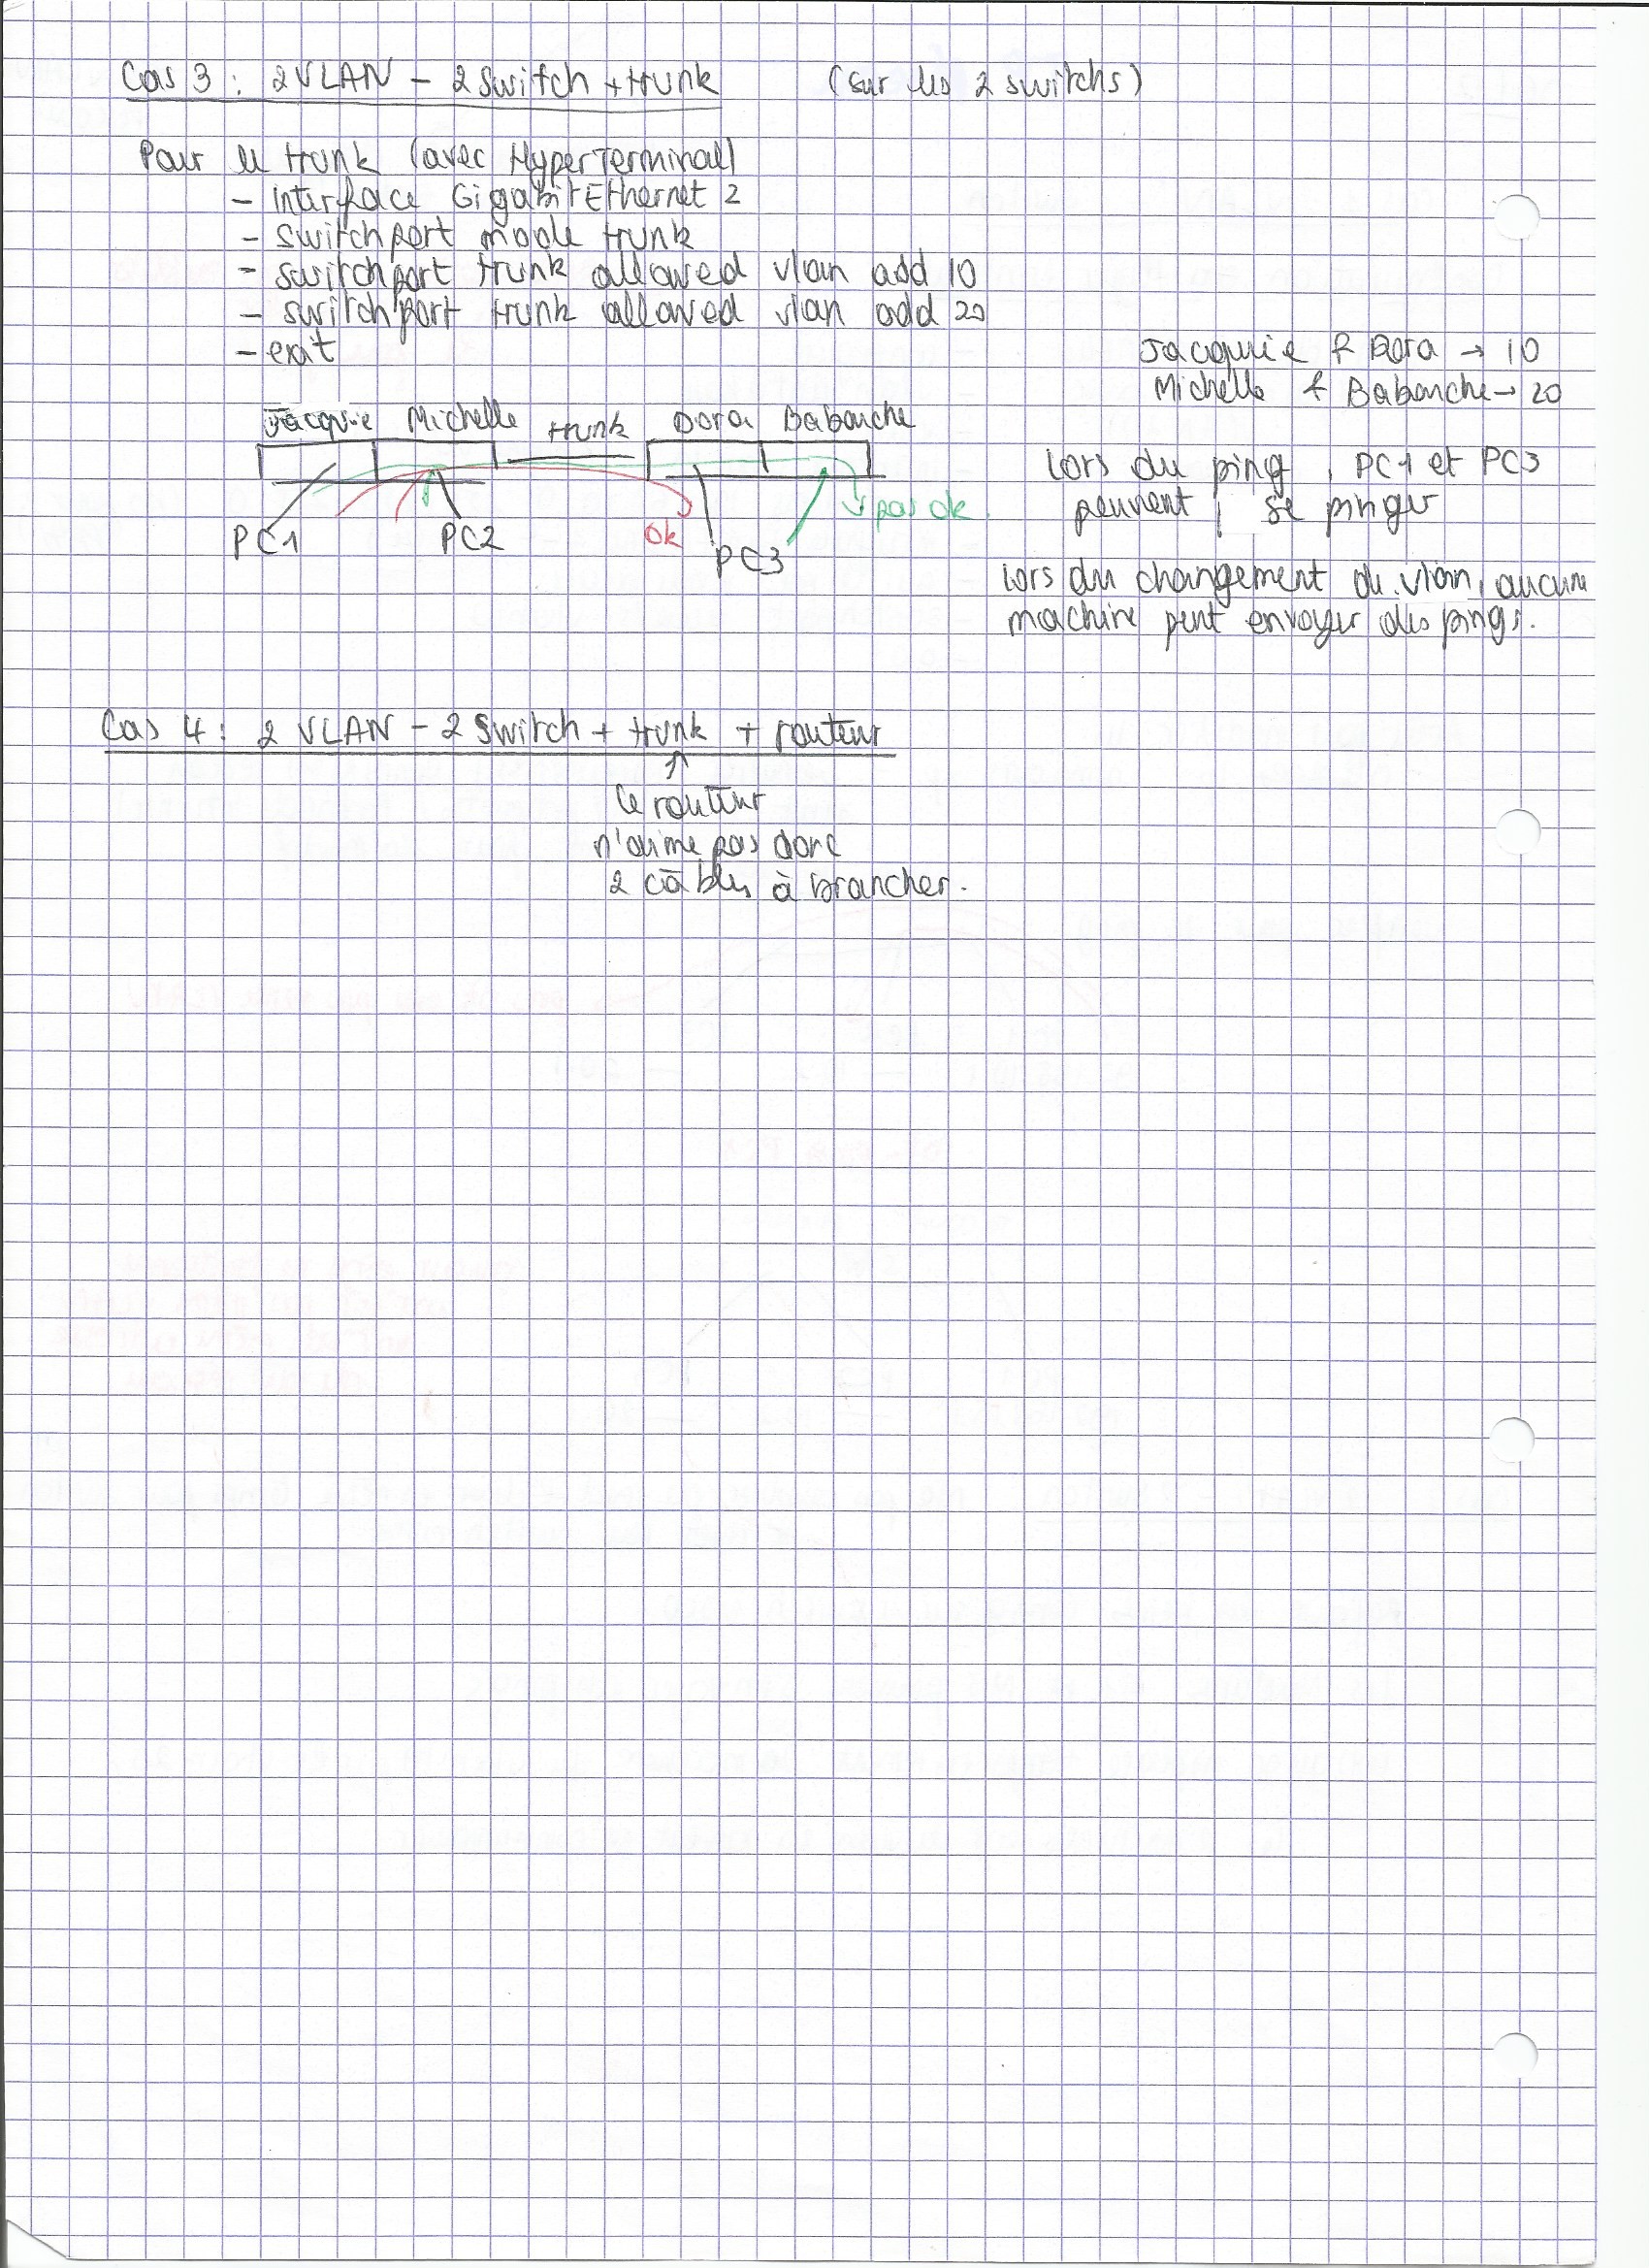 Cas 3 : 2 VLAN - 2 Switch + trunk (sur les 2 switchs)
Pour le trunk (avec HyperTerminal)
- Interface GigabitEthernet 2
- switchport mode trunk
- switchport trunk allowed vlan add 10
- switchport trunk allowed vlan add 20
- exit
Jacquie & Dora → 10
Michelle & Babouche → 20
Jacquie Michelle trunk Dora Babouche
PC1 PC2 Ok PC3 pas ok
Lors du ping, PC1 et PC3
peuvent se pinger
Lors du changement du vlan, aucune
machine peut envoyer des pings.
Cas 4 : 2 VLAN - 2 Switch + trunk + routeur
↑
le routeur
n'aime pas donc
2 câbles à brancher.